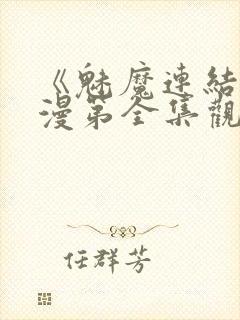 《魅魔連結
漫第全集觀
任群芳